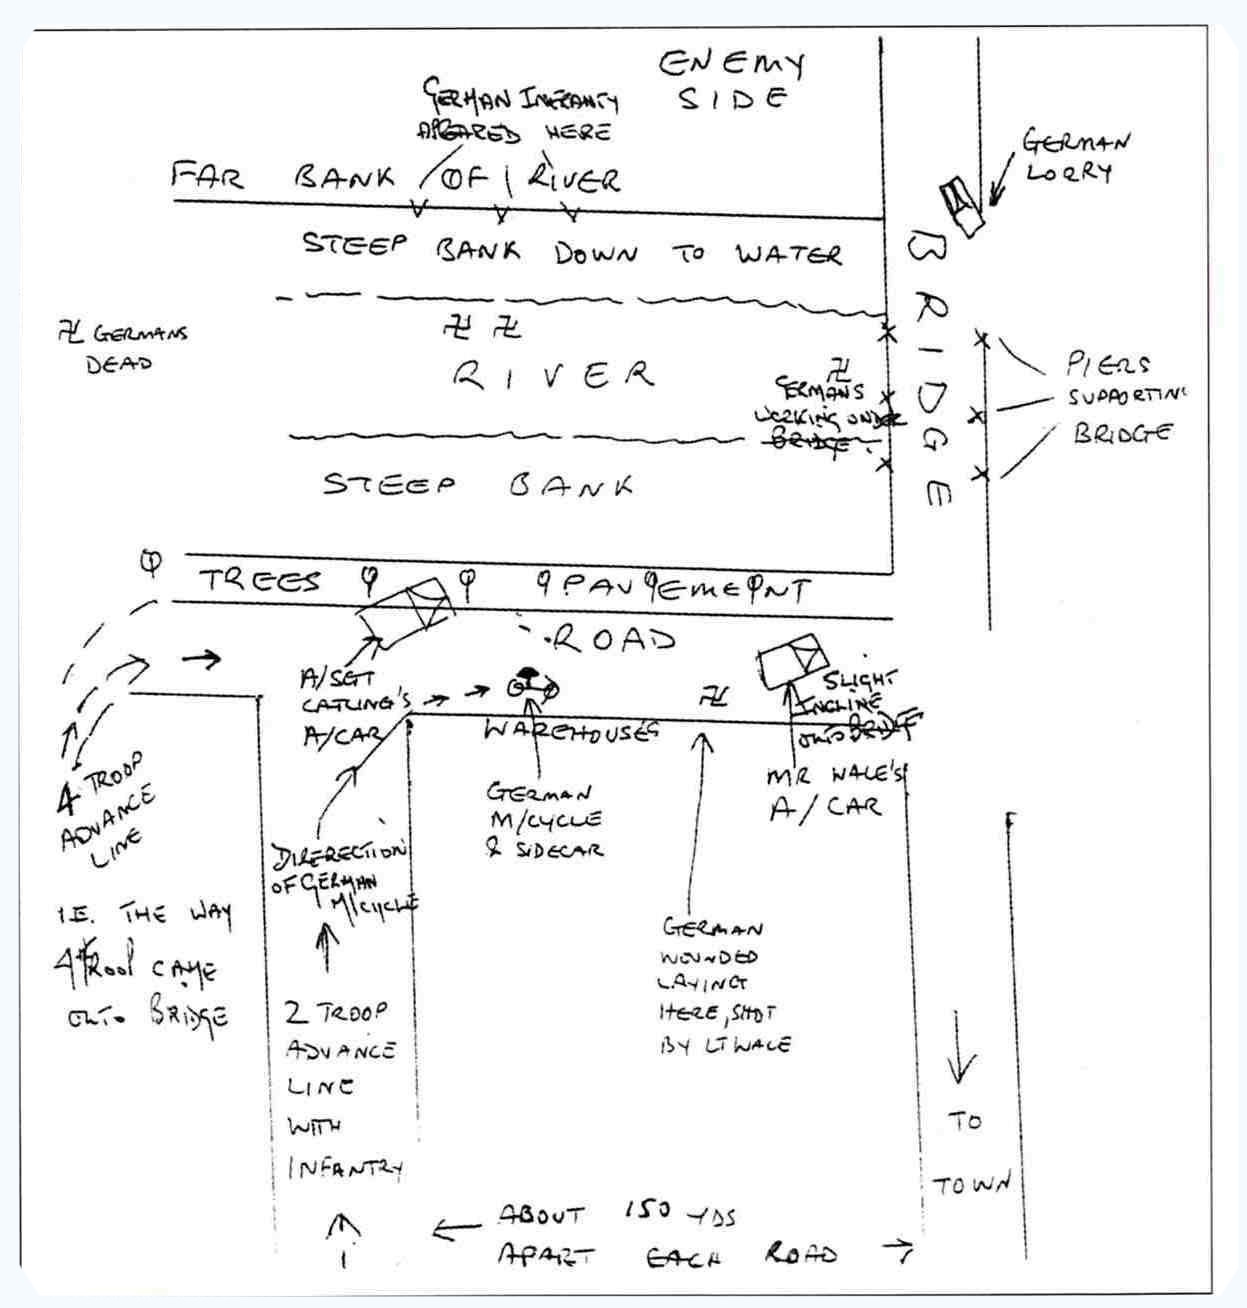 ENEMY
SIDE
GERMAN INFRANTY
APPEARED HERE
GERMAN
LORRY
FAR BANK OF RIVER
STEEP BANK DOWN TO WATER
BRIDGE
卐 GERMANS
DEAD
卐 卐
RIVER
卐
GERMANS
WORKING UNDER
BRIDGE.
PIERS
SUPPORTIN
BRIDGE
STEEP BANK
TREES PAVEMENT
ROAD
A/SGT
CATLING'S
A/CAR
卐
SLIGHT
INCLINE
ONTO BRIDGE
WAREHOUSES
MR WALE'S
A/CAR
GERMAN
M/CYCLE
& SIDECAR
4 TROOP
ADVANCE
LINE
DIRERECTION
OF GERMAN
M/CYCLE
I.E. THE WAY
4 TROOP CAME
ONTO BRIDGE
GERMAN
WOUNDED
LAYING
HERE, SHOT
BY LT WALE
2 TROOP
ADVANCE
LINE
WITH
INFANTRY
TO
TOWN
ABOUT 150 YDS
APART EACH ROAD